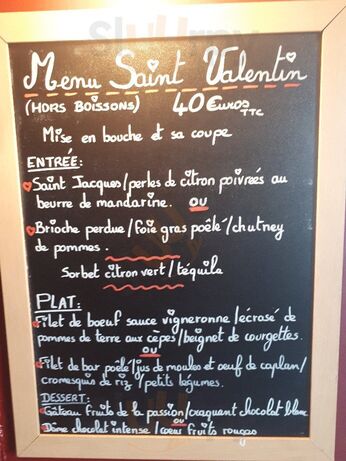 Menu Saint Valentin
(HORS BOISSONS) 40€uros TTC
Mise en bouche et sa coupe
ENTRÉE:
Saint Jacques/perles de citron poivrées au
beurre de mandarine. OU
Brioche perdue/Foie gras poêlé/chutney
de pommes.
Sorbet citron vert/téquila
PLAT:
Filet de boeuf sauce vigneronne/écrasé de
pommes de terre aux cèpes/beignet de courgettes.
OU
Filet de bar poêlé/jus de moules et oeuf de caplan/
cromesquis de riz/petits légumes.
DESSERT:
Gâteau fruits de la passion/craquant chocolat blanc
OU
Dôme chocolat intense/coeur fruits rouges